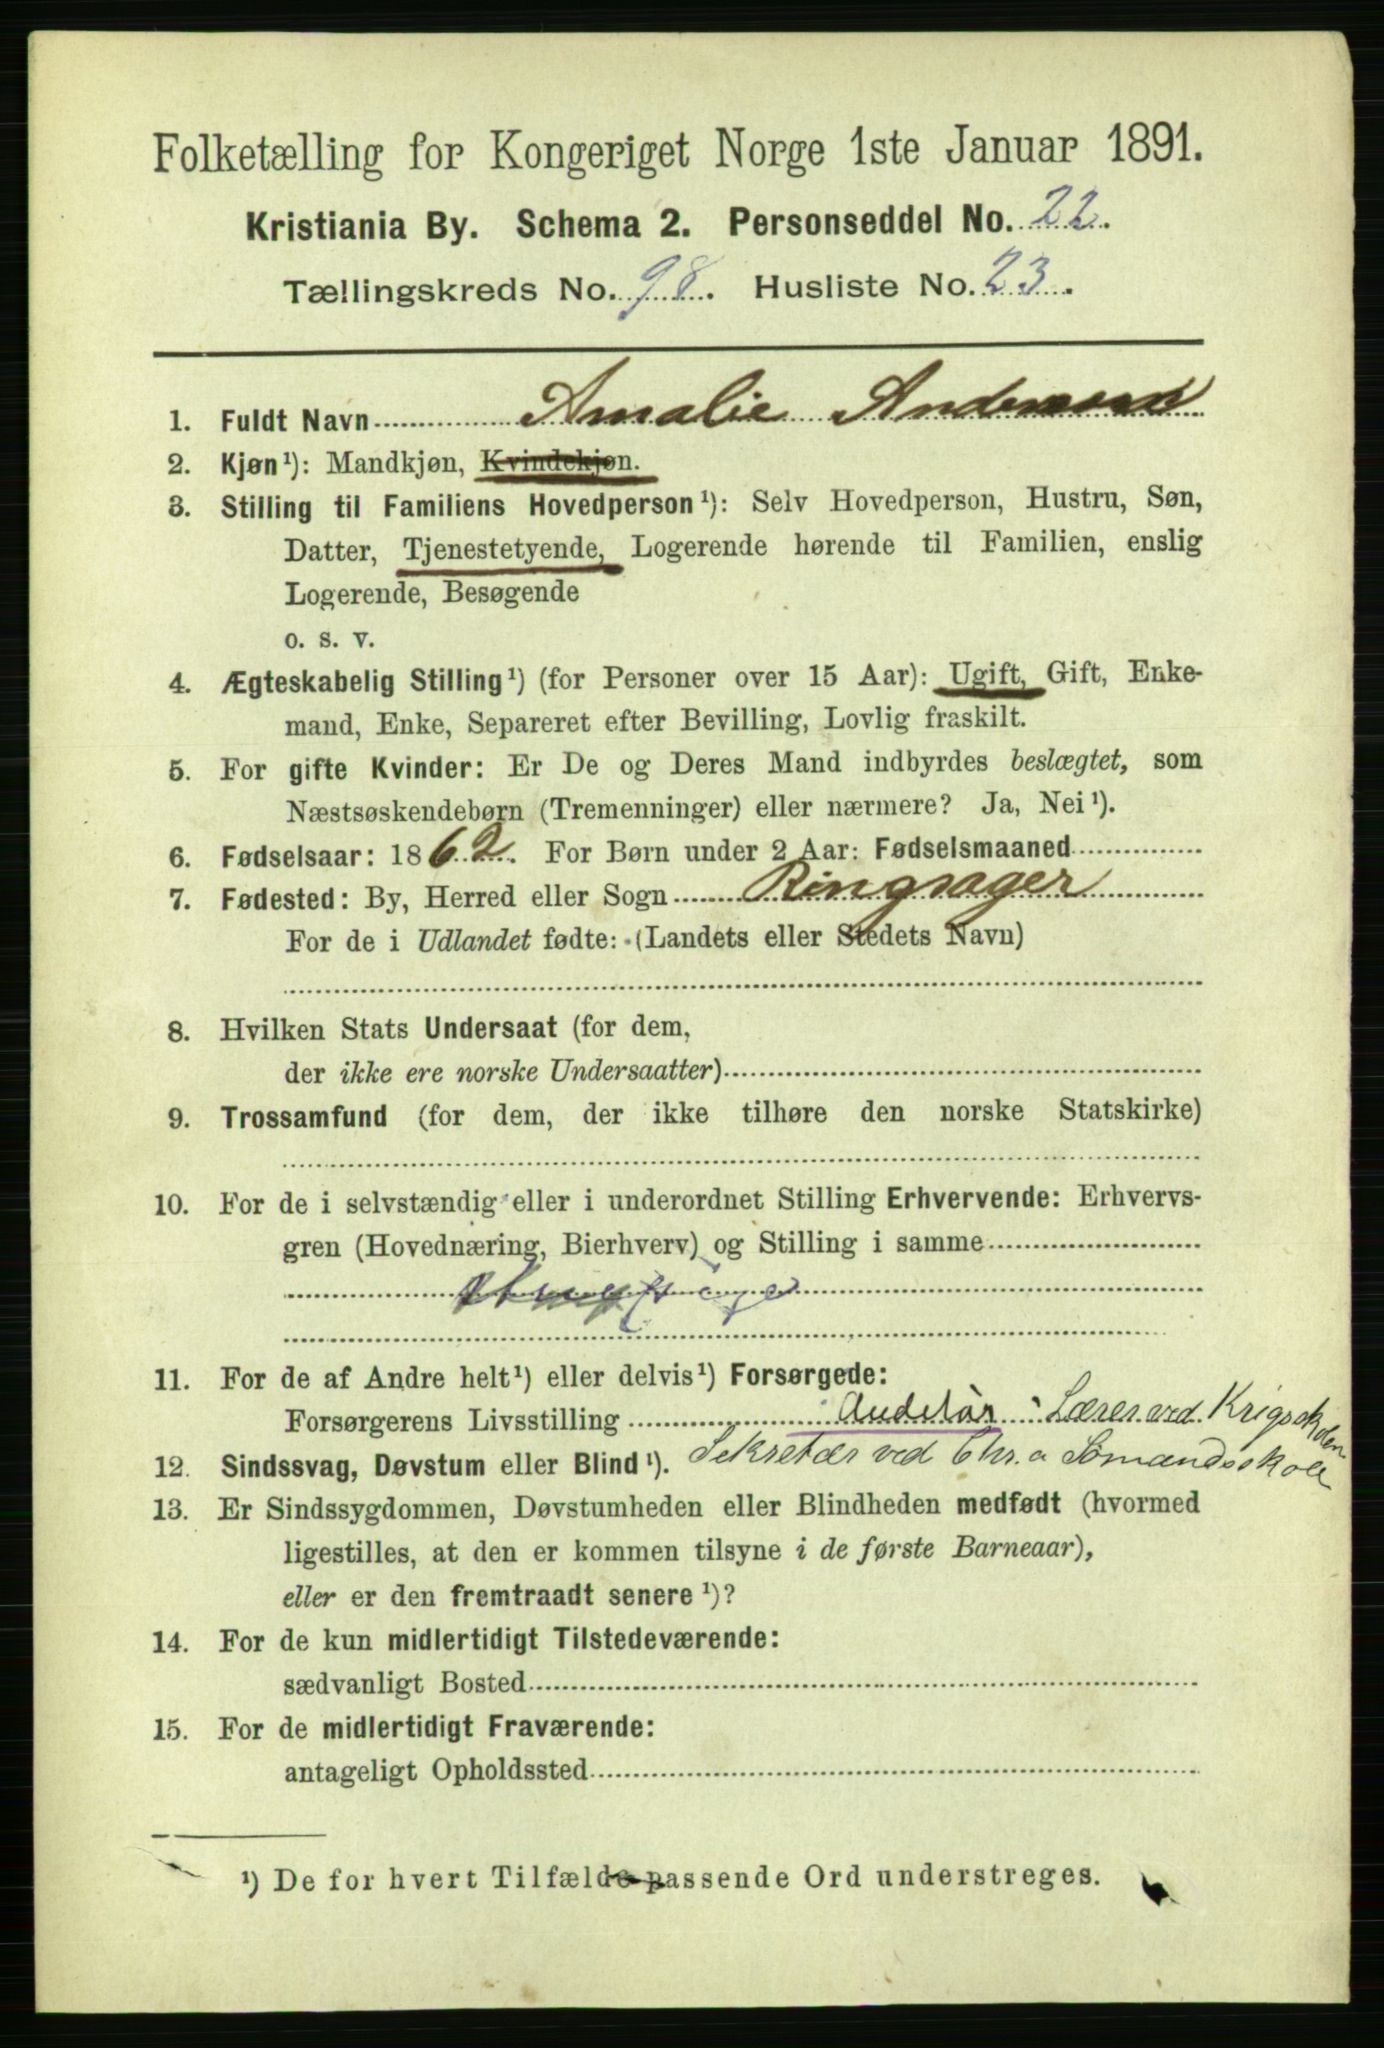 Folketælling for Kongeriget Norge 1ste Januar 1891.
Kristiania By. Schema 2. Personseddel No. 22.
Tællingskreds No. 98. Husliste No. 23.
1. Fuldt Navn Amalie Andersen
2. Kjøn¹): Mandkjøn, Kvindekjøn.
3. Stilling til Familiens Hovedperson¹): Selv Hovedperson, Hustru, Søn,
Datter, Tjenestetyende, Logerende hørende til Familien, enslig
Logerende, Besøgende
o. s. v.
4. Ægteskabelig Stilling¹) (for Personer over 15 Aar): Ugift, Gift, Enke-
mand, Enke, Separeret efter Bevilling, Lovlig fraskilt.
5. For gifte Kvinder: Er De og Deres Mand indbyrdes beslægtet, som
Næstsøskendebørn (Tremenninger) eller nærmere? Ja, Nei¹).
6. Fødselsaar: 1862. For Børn under 2 Aar: Fødselsmaaned
7. Fødested: By, Herred eller Sogn Ringsager
For de i Udlandet fødte: (Landets eller Stedets Navn)
8. Hvilken Stats Undersaat (for dem,
der ikke ere norske Undersaatter)
9. Trossamfund (for dem, der ikke tilhøre den norske Statskirke)
10. For de i selvstændig eller i underordnet Stilling Erhvervende: Erhvervs-
gren (Hovednæring, Bierhverv) og Stilling i samme
11. For de af Andre helt¹) eller delvis¹) Forsørgede:
Forsørgerens Livsstilling Auditør. Lærer ved Krigsskolen
12. Sindssvag, Døvstum eller Blind¹). Sekretær ved Chr.a Sømandsskole
13. Er Sindssygdommen, Døvstumheden eller Blindheden medfødt (hvormed
ligestilles, at den er kommen tilsyne i de første Barneaar),
eller er den fremtraadt senere¹)?
14. For de kun midlertidigt Tilstedeværende:
sædvanligt Bosted
15. For de midlertidigt Fraværende:
antageligt Opholdssted
¹) De for hvert Tilfælde passende Ord understreges.